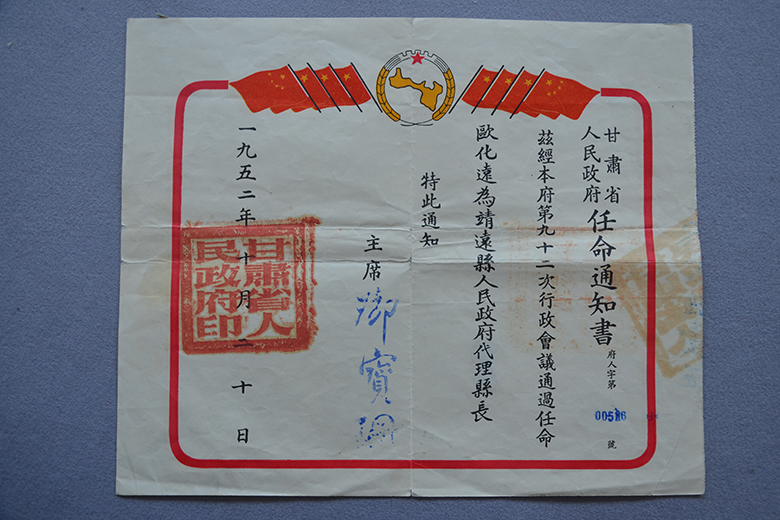 甘肅省
人民政府
任命通知書
府人字第
號
茲經本府第九十二次行政會議通過任命
歐化遠為靖遠縣人民政府代理縣長
特此通知
主席
一九五二年十月二十日
甘肅省人
民政府印